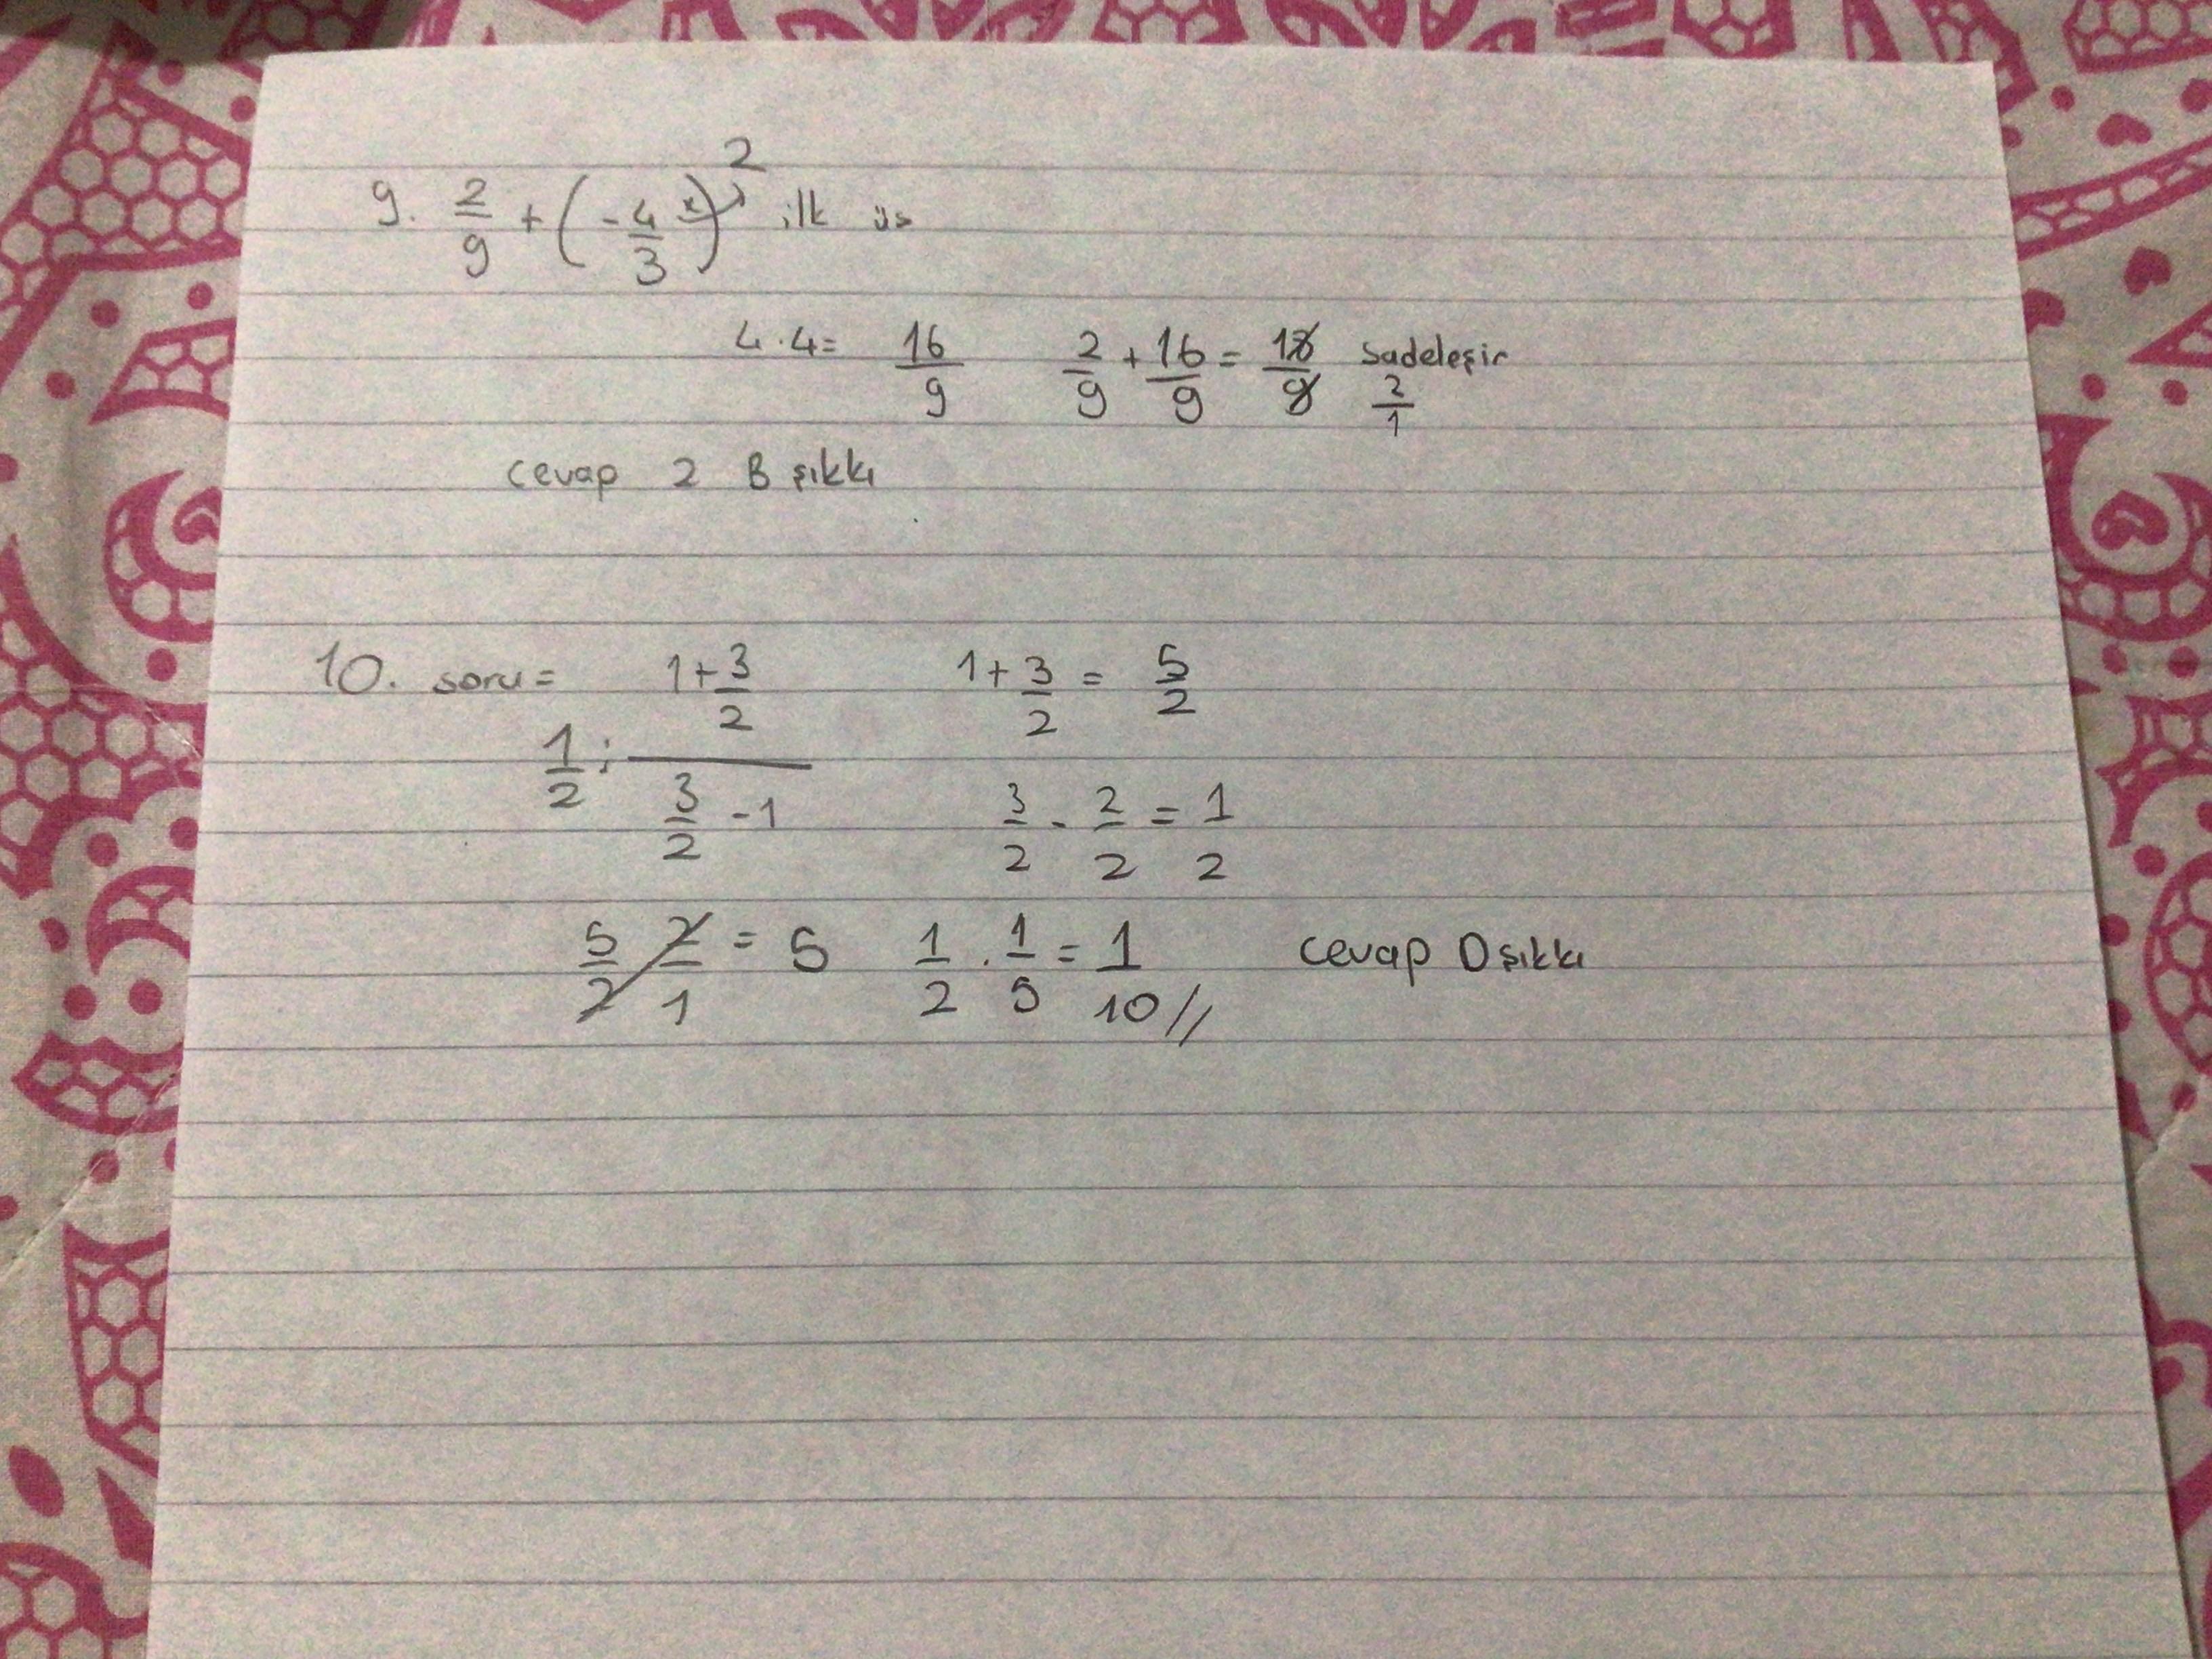 9. 2/9 + (-4/3)² ilk üs
4.4= 16/9 2/9 + 16/9 = 18/9 sadeleşir 2/1
cevap 2 B şıkkı
10. soru= 1/2 : (1+3/2)/(3/2 -1) 1+3/2 = 5/2
3/2 - 2/2 = 1/2
5/2 2/1 = 5 1/2 . 1/5 = 1/10// cevap D şıkkı